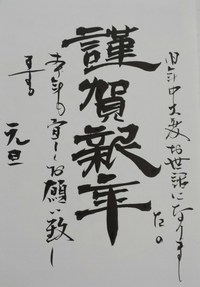 旧年中大変お世話になりまし
た。
謹賀新年
本年も宜しくお願い致し
ます
元旦